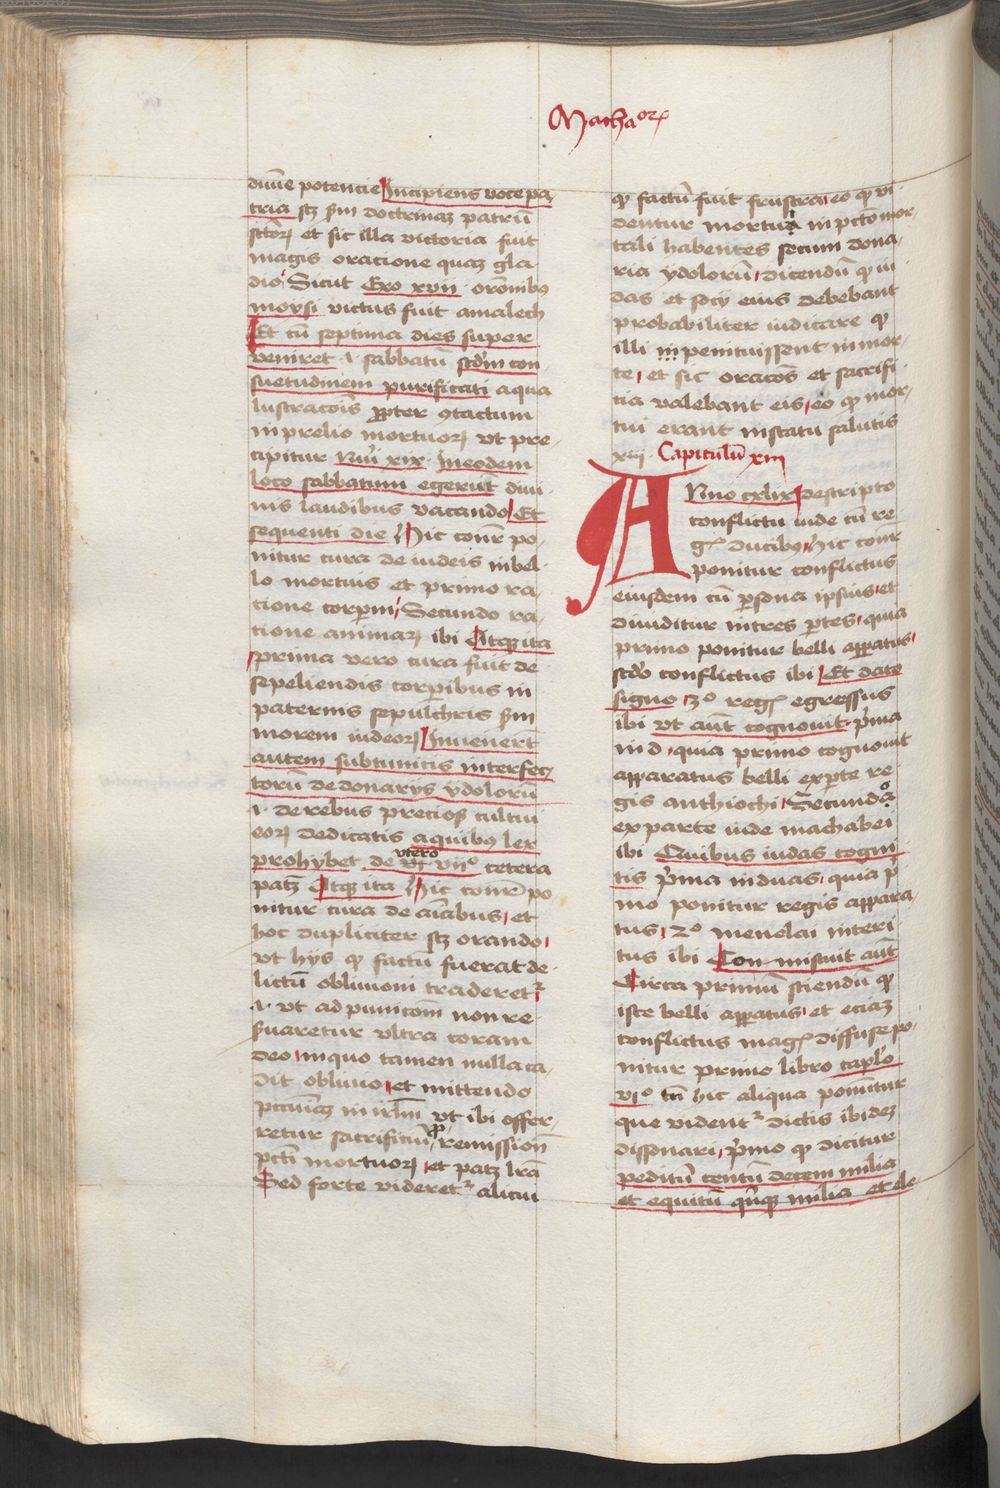 Machaor
diuine potencie Incipiens voce pa
tria scz scdm doctrinaz patru
sctor et sic illa victoria fuit
magis oracione quaz gla
dio Sicut Exo xvii oronibus
moysi victus fuit amalech
Et cu septima dies super
veniret .i. sabbatu scdm con
suetudinem purificati aqua
lustracois ppter 9tactum
in prelio mortuor vt pre
cipitur Nui xix In eodem
loco sabbatum egerut diui
nis laudibus vacando Et
sequenti die Hic conr po
nitur cura de iudeis in bel
lo mortuis et primo ra
cione corperm Secundo ra
cione animar ibi Atqz ita
prima vero cura fuit de
sepeliendis corperibus in
paternis sepulchris scdm
morem iudeor Inuenert
autem sub tunicis interfec
toru de donarys ydoloru
.i. de rebus preciosis cultui
eor dedicatis a quibus lex
prohybet deutero vt viio cetera
patz Atqz ita Hic conr po
nitur cura de aiabus et
hoc dupliciter scz orando
vt hys qz factu fuerat de
lictu obliuioni traderetur
.i. vt ad punicom non re
suaretur vltra coram
deo in quo tamen nulla ca
dit obliuio et mittendo
pecuniaz in irlm vt ibi offer
retur sacrificiu pro remission
pcti mortuor et patz lra
Sed forte videretur alicui
qz factu fuit frustra eo qz vi
dentur mortui in pcto mor
tali habentes secum dona
ria ydoloru dicendu qz iu
das et socy eius debebant
probabiliter iudicare qz
illi penituissent in mor
te et sic oracos et sacrifi
cia valebant eis eo qz mor
tui erant in statu salutis
xiii Capitulu xiii
Anno cxlix Descripto
conflictu iude cu re
gis ducibus Hic conr
ponitur conflictus
eiusdem cu psona ipsius et
diuiditur in tres ptes quia
primo ponitur belli apparatus
scdo conflictus ibi Et date
signo 3o regis egressus
ibi vt aut cognouit pma
in d quia primo cognouit
apparatus belli ex pte re
gis anthiochi Secundo
ex parte iude machabei
ibi Quibus iudas cogni
tis pma in duas quia pi
mo ponitur regis appara
tus 2o menelai interi
tus ibi Con miscuit aut
Circa primum sciendu qz
iste belli apparatus et eciaz
conflictus magis diffuse po
nitur primo libro caplo
vio tn hic aliqua ponuntur
que videntur dictis ibidez
dissonari pmo qz dicitur
peditu centu decem milia
et equitu qnqz milia et ele